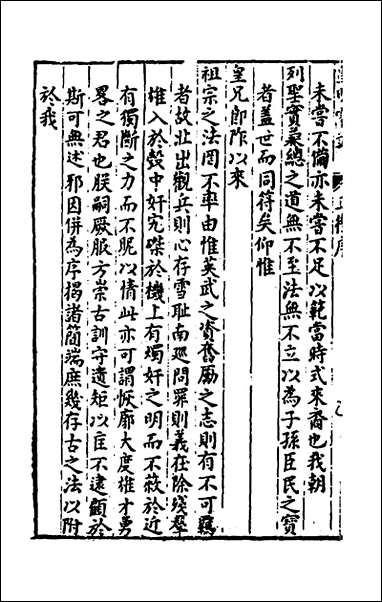 未嘗不備亦未嘗不足以範當時式來裔也我朝
列聖寶纂總之道無不至法無不立以為子孫臣民之寶
者蓋世而同符矣仰惟
皇兄即阼以來
祖宗之法罔不率由惟英武之資奮勵之志則有不可羈
者故北出觀兵則心存雪耻南廵問罪則義在除殘羣
雄入於彀中奸宄磔於機上有燭奸之明而不蔽於近
有獨斷之力而不昵以情此亦可謂恢廓大度雄才勇
畧之君也朕嗣厥服方崇古訓守遺矩以匡不逮顧於
斯可無述邪因併為序揭諸簡端庶幾存古之法以附
於我